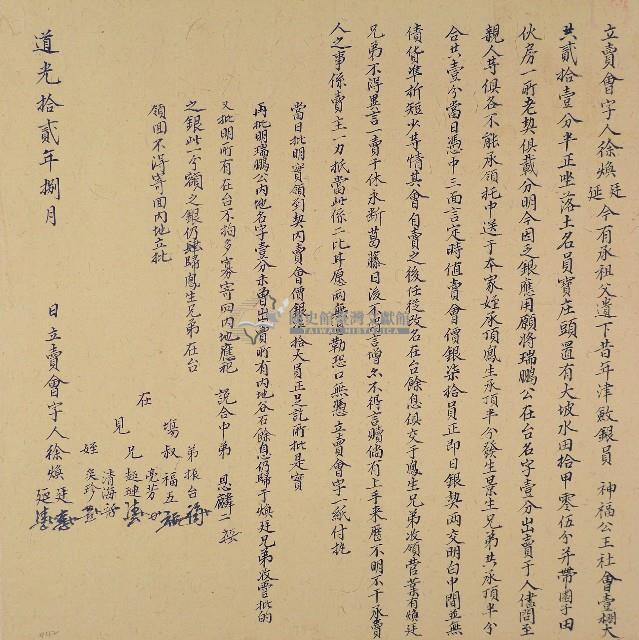 立賣會字人徐煥廷延今有承祖父遺下昔年津敷銀員 神福公王社會壹棚大
共貳拾壹分半正坐落土名員寶庄頭置有大坡水田拾甲零伍分并帶園子田
伙房一所老契俱載分明今因乏銀應用願將瑞鵬公在台名字壹分出賣于人儘問至
親人等俱各不能承領托中送于本家姪承頂鳳生承頂半分發生景生兄弟共承頂半分
合共壹分當日憑中三面言定時值賣會價銀柒拾員正即日銀契兩交明白中間並無
債貨準折短少等情其會自賣之後任從改名在台餘息俱交于鳳生兄弟收領營業有煥廷
兄弟不得異言一賣千休永斷葛藤日後不言增亦不得言贖倘有上手來歷不明不干承賣
人之事係賣主一力抵當此係二比甘愿兩無勒恐口無憑立賣會字一紙付執
當日批明實領到契內賣會價銀柒拾大員正足訖所批是實
再批明瑞鵬公內地名字壹分未曾出賣所有內地谷石餘息仍歸于煥廷兄弟收管批的
又批明所有在台不拘多寡寄回內地應祀
之銀此一分額之銀仍歸鳳生兄弟在台
領回不得寄回內地立批
說合中弟 恩麟
弟振台
在場叔福五
見兄超連
亮芳
清海
姪 癸珍
道光拾貳年捌月 日立賣會字人徐煥廷延
臺灣文獻館
TAIWAN HISTORICA